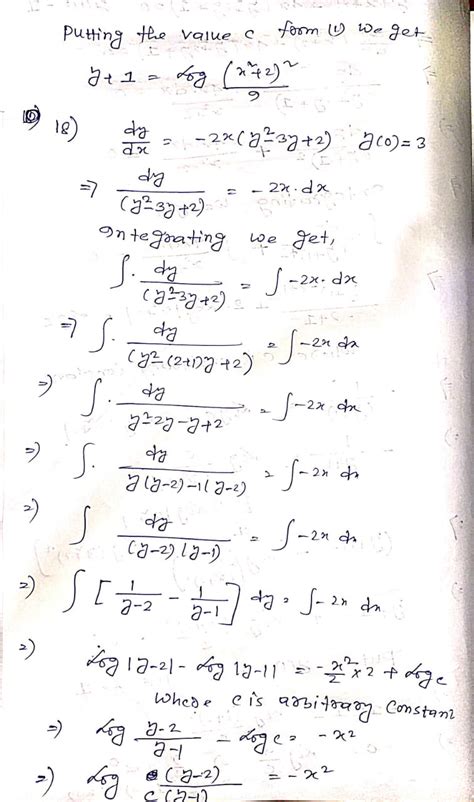 Putting the value c form (1) we get
y+1 = log (x²+2)² / 9
18) dy/dx = -2x(y²-3y+2) y(0)=3
=> dy / (y²-3y+2) = -2x.dx
Integrating we get,
∫. dy / (y²-3y+2) = ∫-2x. dx
=> ∫. dy / (y²-(2+1)y+2) = ∫-2x dx
=> ∫. dy / y²-2y-y+2 = ∫-2x dx
=> ∫. dy / y(y-2)-1(y-2) = ∫-2x dx
=> ∫ dy / (y-2)(y-1) = ∫-2x dx
=> ∫ [1/y-2 - 1/y-1] dy = ∫-2x dx
=> log|y-2| - log|y-1| = -x²/2 x2 + log c
where c is arbitrary constant
=> log y-2 / y-1 - log c = -x²
=> log (y-2) / c(y-1) = -x²